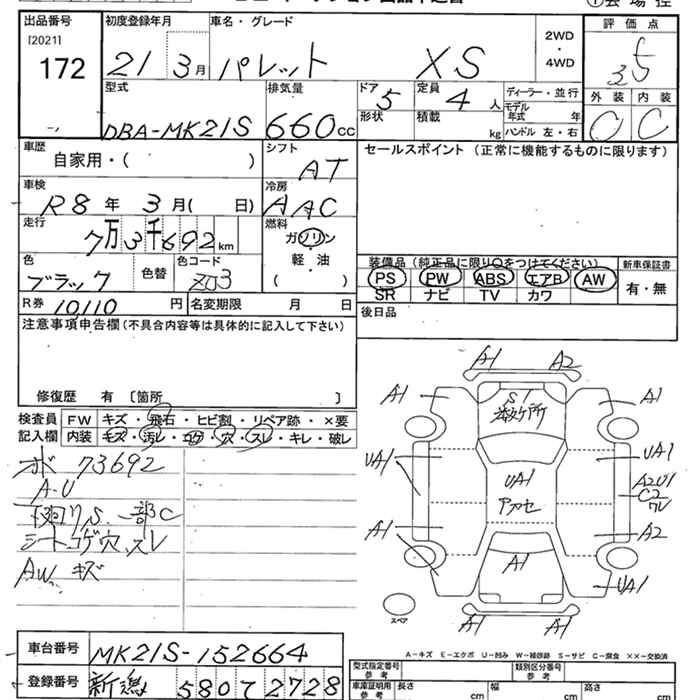 出品番号 初度登録年月 車名・グレード 評価点
[2021]
172
21 3月 パレット XS
2WD
・
4WD
3.5
型式 排気量 ドア 定員 ディーラー・並行 外装 内装
DBA-MK21S 660cc 5 4人
モデル年式 年
形状 積載 kg ハンドル 左・右
C
車歴 シフト セールスポイント(正常に機能するものに限ります)
自家用・( ) AT
車検 冷房
R8年 3月( 日) AAC
走行 燃料
7万3千692km ガソリン
・
軽・油
( )
色 色替 色コード
ブラック ZJ3
装備品(純正品に限り○をつけてください) 新車保証書
PS PW ABS エアB AW 有・無
SR ナビ TV カワ
R券 10110円 名変期限 月 日
後日品
注意事項申告欄(不具合内容等は具体的に記入して下さい)
修復歴 有 〔箇所 〕
検査員記入欄 FW キズ・飛石・ヒビ割・リペア跡・×要
内装 キズ・汚レ・コゲ・穴・スレ・キレ・破レ
メーター 73692
A-U
下廻りS、一部C
シートコゲ穴、スレ
AW キズ
A1 A2
A1 A1
S1
UA1 UA1
UA1
A2U1
C2
ワレ
A1 A2
A1
UA1
A1 A1
スペア
A-キズ E-エクボ U-凹み W-補修跡 S-サビ C-腐食 ××-交換済
車台番号 MK21S-152664
登録番号 新潟 580 て 2728
型式指定番号 参考 類別区分番号 参考
車庫証明用 参考 長さ cm 幅 cm 高さ cm